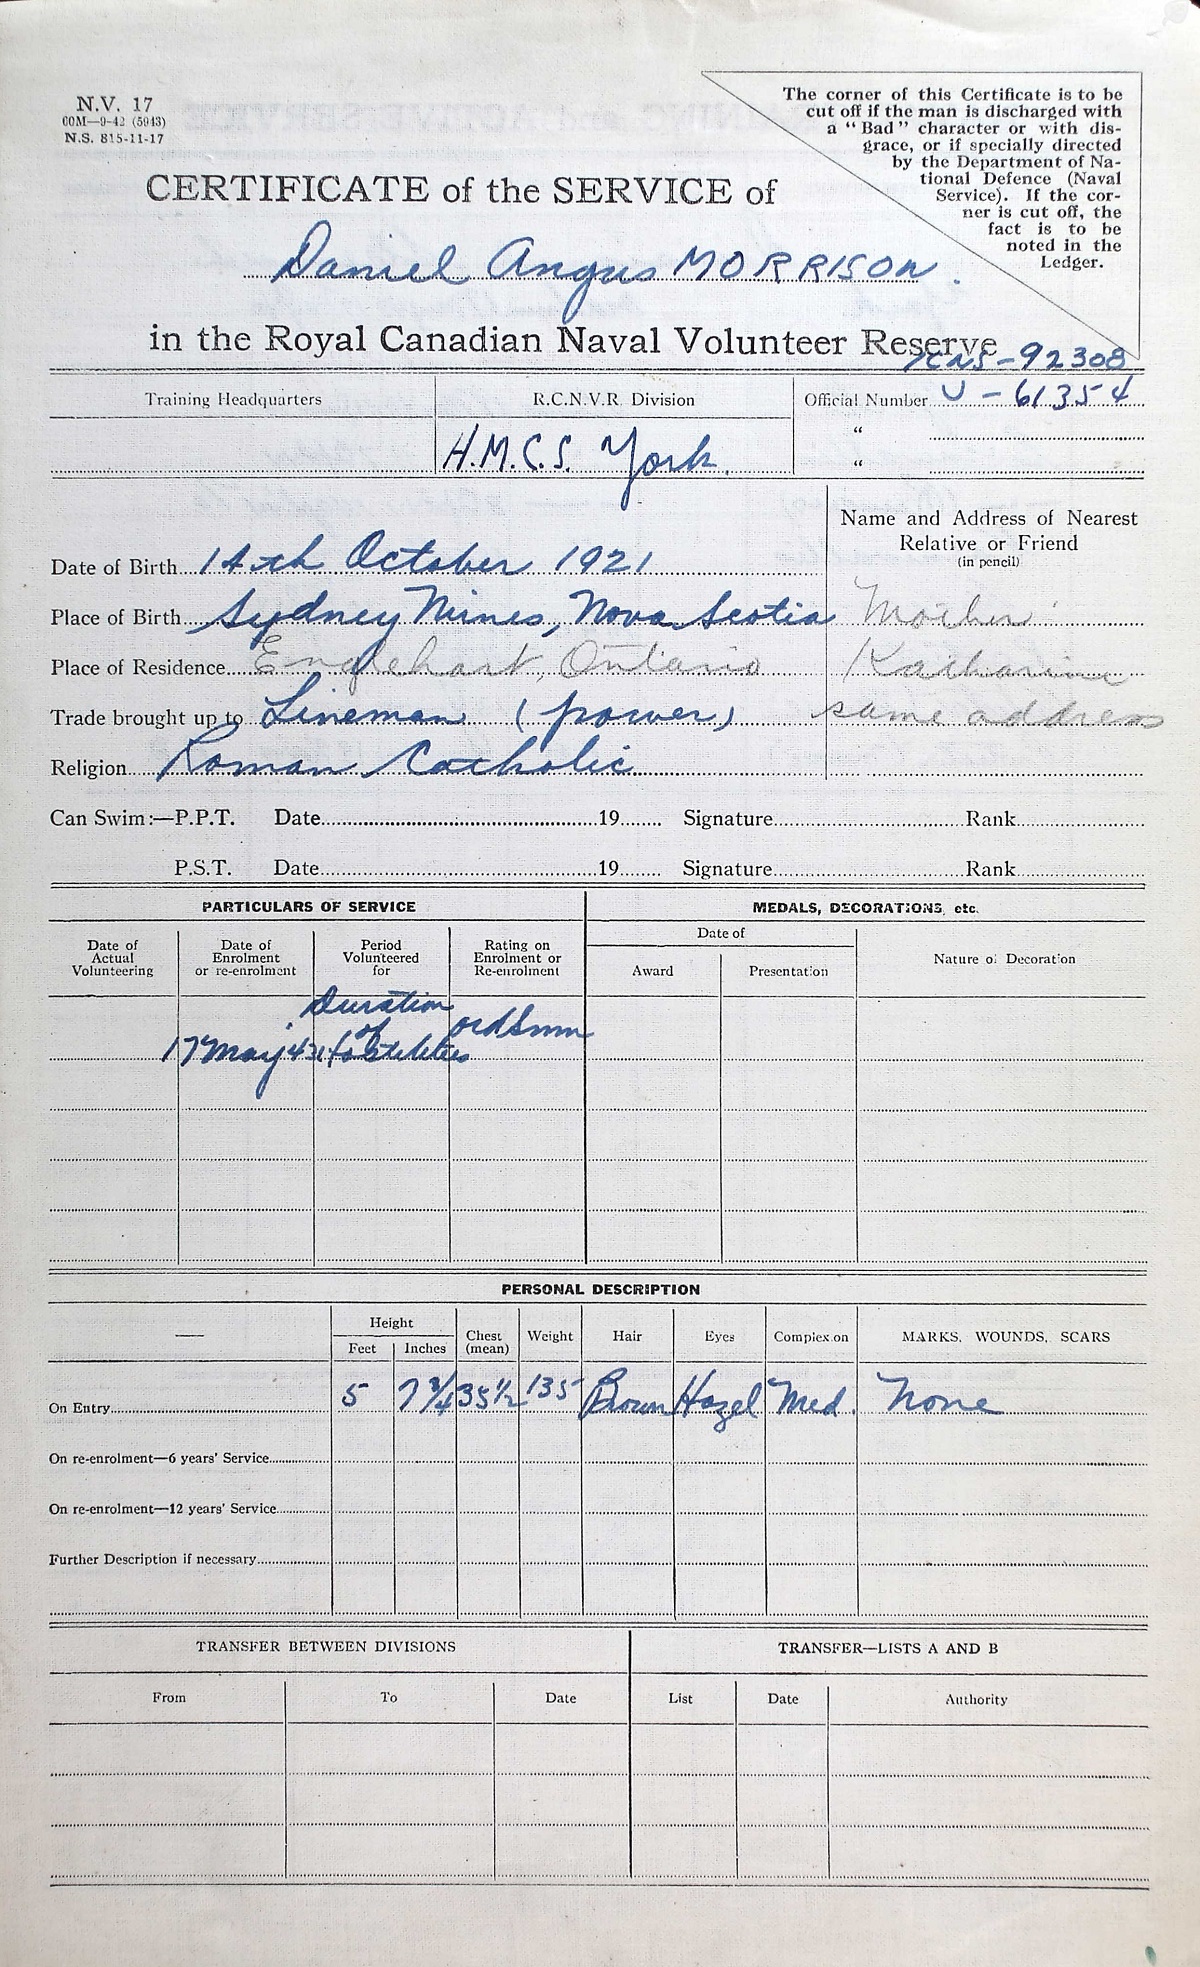 N.V. 17
00M—9-42 (5943)
N.S. 815-11-17
The corner of this Certificate is to be
cut off if the man is discharged with
a "Bad" character or with dis-
grace, or if specially directed
by the Department of Na-
tional Defence (Naval
Service). If the cor-
ner is cut off, the
fact is to be
noted in the
Ledger.
CERTIFICATE of the SERVICE of
Daniel Angus MORRISON.
in the Royal Canadian Naval Volunteer Reserve
-92308
Training Headquarters R.C.N.V.R. Division Official Number V-61354
H.M.C.S. York "
"
Name and Address of Nearest
Relative or Friend
(in pencil)
Date of Birth 14th October 1921
Place of Birth Sydney Mines, Nova Scotia Mother
Place of Residence Englehart, Ontario Katharine
Trade brought up to Lineman (power) same address
Religion Roman Catholic
Can Swim:—P.P.T. Date 19 Signature Rank
P.S.T. Date 19 Signature Rank
PARTICULARS OF SERVICE MEDALS, DECORATIONS, etc.
Date of Actual Volunteering Date of Enrolment or re-enrolment Period Volunteered for Rating on Enrolment or Re-enrolment Date of Award Presentation Nature of Decoration
17 May 43 Duration of Hostilities ord Smn
PERSONAL DESCRIPTION
— Height Feet Inches Chest (mean) Weight Hair Eyes Complexion MARKS, WOUNDS, SCARS
On Entry 5 7 3/4 35 1/2 135 Brown Hazel Med. None
On re-enrolment—6 years' Service
On re-enrolment—12 years' Service
Further Description if necessary
TRANSFER BETWEEN DIVISIONS TRANSFER—LISTS A AND B
From To Date List Date Authority